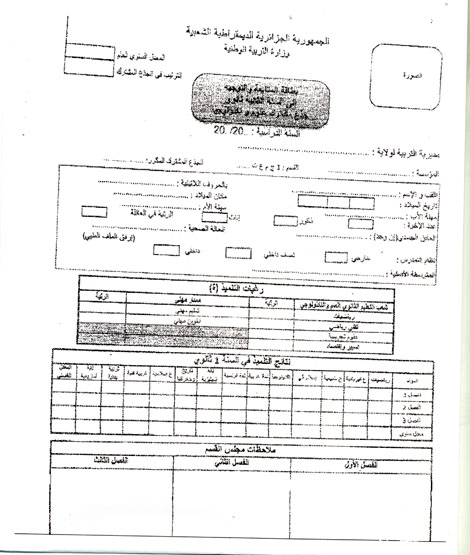 الجمهورية الجزائرية الديمقراطية الشعبية
وزارة التربية الوطنية
المعدل السنوي العام
الترتيب في الجذع المشترك
الصورة
بطاقة المتابعة والتوجيه
إلى السنة الثانية ثانوي
جذع مشترك علوم و تكنولوجيا
السنة الدراسية : 20../20..
مديرية التربية لولاية :
المؤسسة : القسم : 1 ج م ع ت الجذع المشترك المكرر:
اللقب و الإسم : بالحروف اللاتينية :
تاريخ الميلاد : مكان الميلاد :
مهنة الأب : مهنة الأم :
عدد الإخوة : ذكور إناث الرتبة في العائلة
(إن وجد) : الحالة الصحية : (يرفق الملف الطبي)
نظام التمدرس : خارجي نصف داخلي داخلي
رغبات التلميذ (ة)
شعب التعليم الثانوي العام والتكنولوجي الرتبة مسار مهني الرتبة
رياضيات تعليم مهني
تقني رياضي تكوين مهني
علوم تجريبية
تسيير واقتصاد
نتائج التلميذ في السنة 1 ثانوي
المواد رياضيات ع فيزيائية ع طبيعية إعلام آلي تكنولوجيا لغة عربية لغة فرنسية لغة إنجليزية تاريخ وجغرافيا ع إسلامية تربية فنية تربية بدنية لغة أمازيغية المعدل الفصلي
الفصل 1
الفصل 2
الفصل 3
معدل سنوي
ملاحظات مجلس القسم
الفصل الأول الفصل الثاني الفصل الثالث